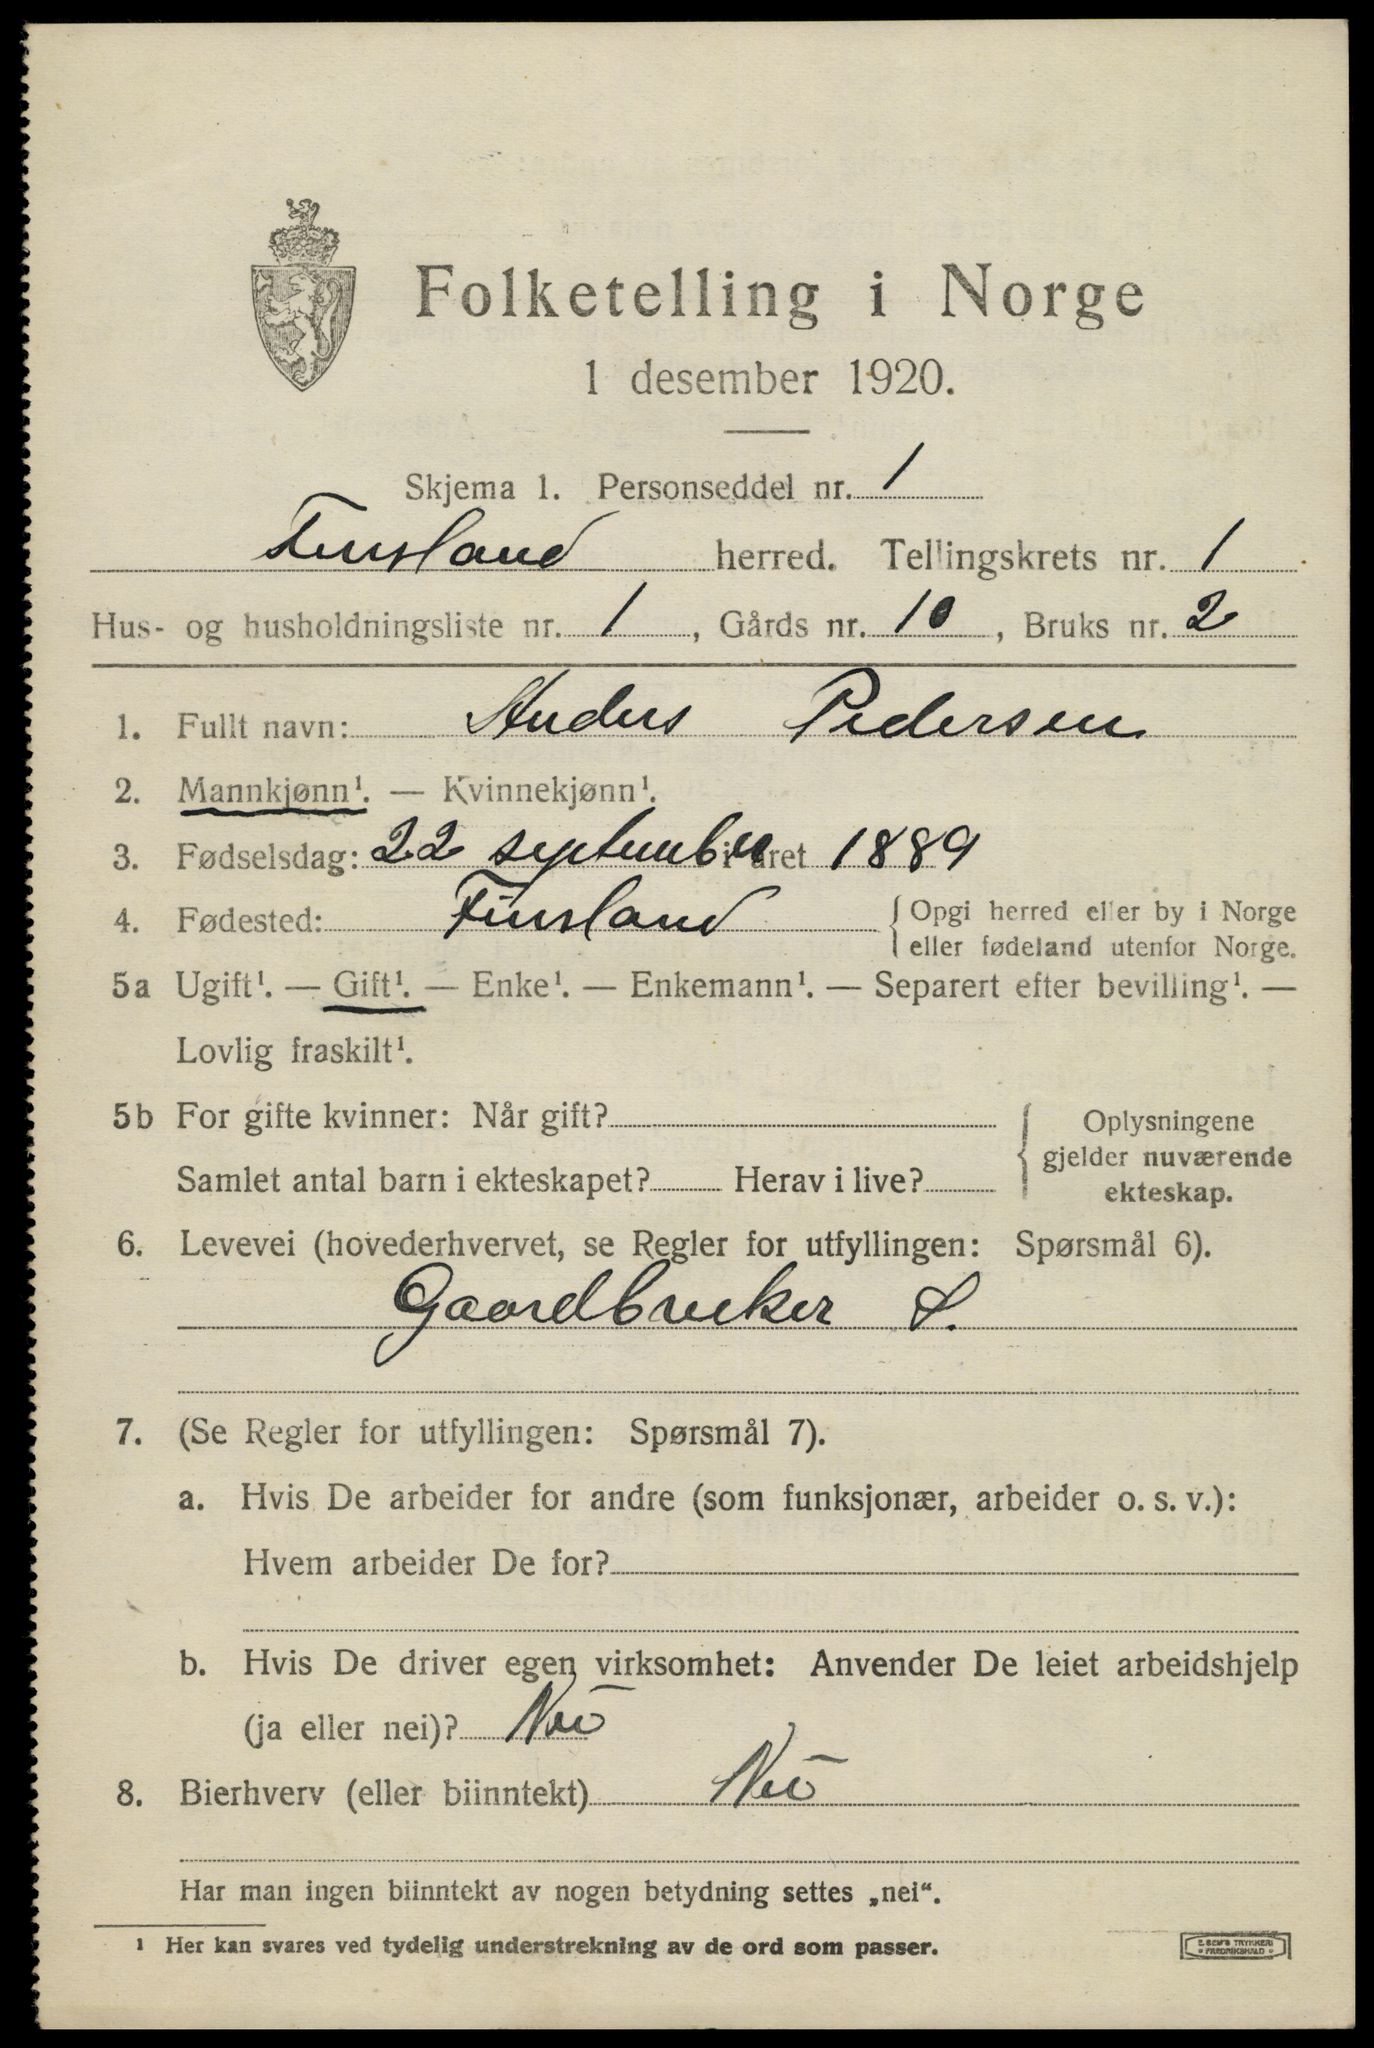 Folketelling i Norge
1 desember 1920.
Skjema 1. Personseddel nr. 1
Finsland herred. Tellingskrets nr. 1
Hus- og husholdningsliste nr. 1, Gårds nr. 10, Bruks nr. 2
1. Fullt navn: Anders Pedersen
2. Mannkjønn¹. — Kvinnekjønn¹.
3. Fødselsdag: 22 september i året 1889
4. Fødested: Finsland { Opgi herred eller by i Norge
eller fødeland utenfor Norge.
5a Ugift¹. — Gift¹. — Enke¹. — Enkemann¹. — Separert efter bevilling¹. —
Lovlig fraskilt¹.
5b For gifte kvinner: Når gift? { Oplysningene
gjelder nuværende
Samlet antal barn i ekteskapet? Herav i live? ekteskap.
6. Levevei (hovederhvervet, se Regler for utfyllingen: Spørsmål 6).
Gaardbruker S.
7. (Se Regler for utfyllingen: Spørsmål 7).
a. Hvis De arbeider for andre (som funksjonær, arbeider o. s. v.):
Hvem arbeider De for?
b. Hvis De driver egen virksomhet: Anvender De leiet arbeidshjelp
(ja eller nei)? Nei
8. Bierhverv (eller biinntekt) Nei
Har man ingen biinntekt av nogen betydning settes „nei“.
¹ Her kan svares ved tydelig understrekning av de ord som passer.
E. SEM'S TRYKKERI
FREDRIKSHALD